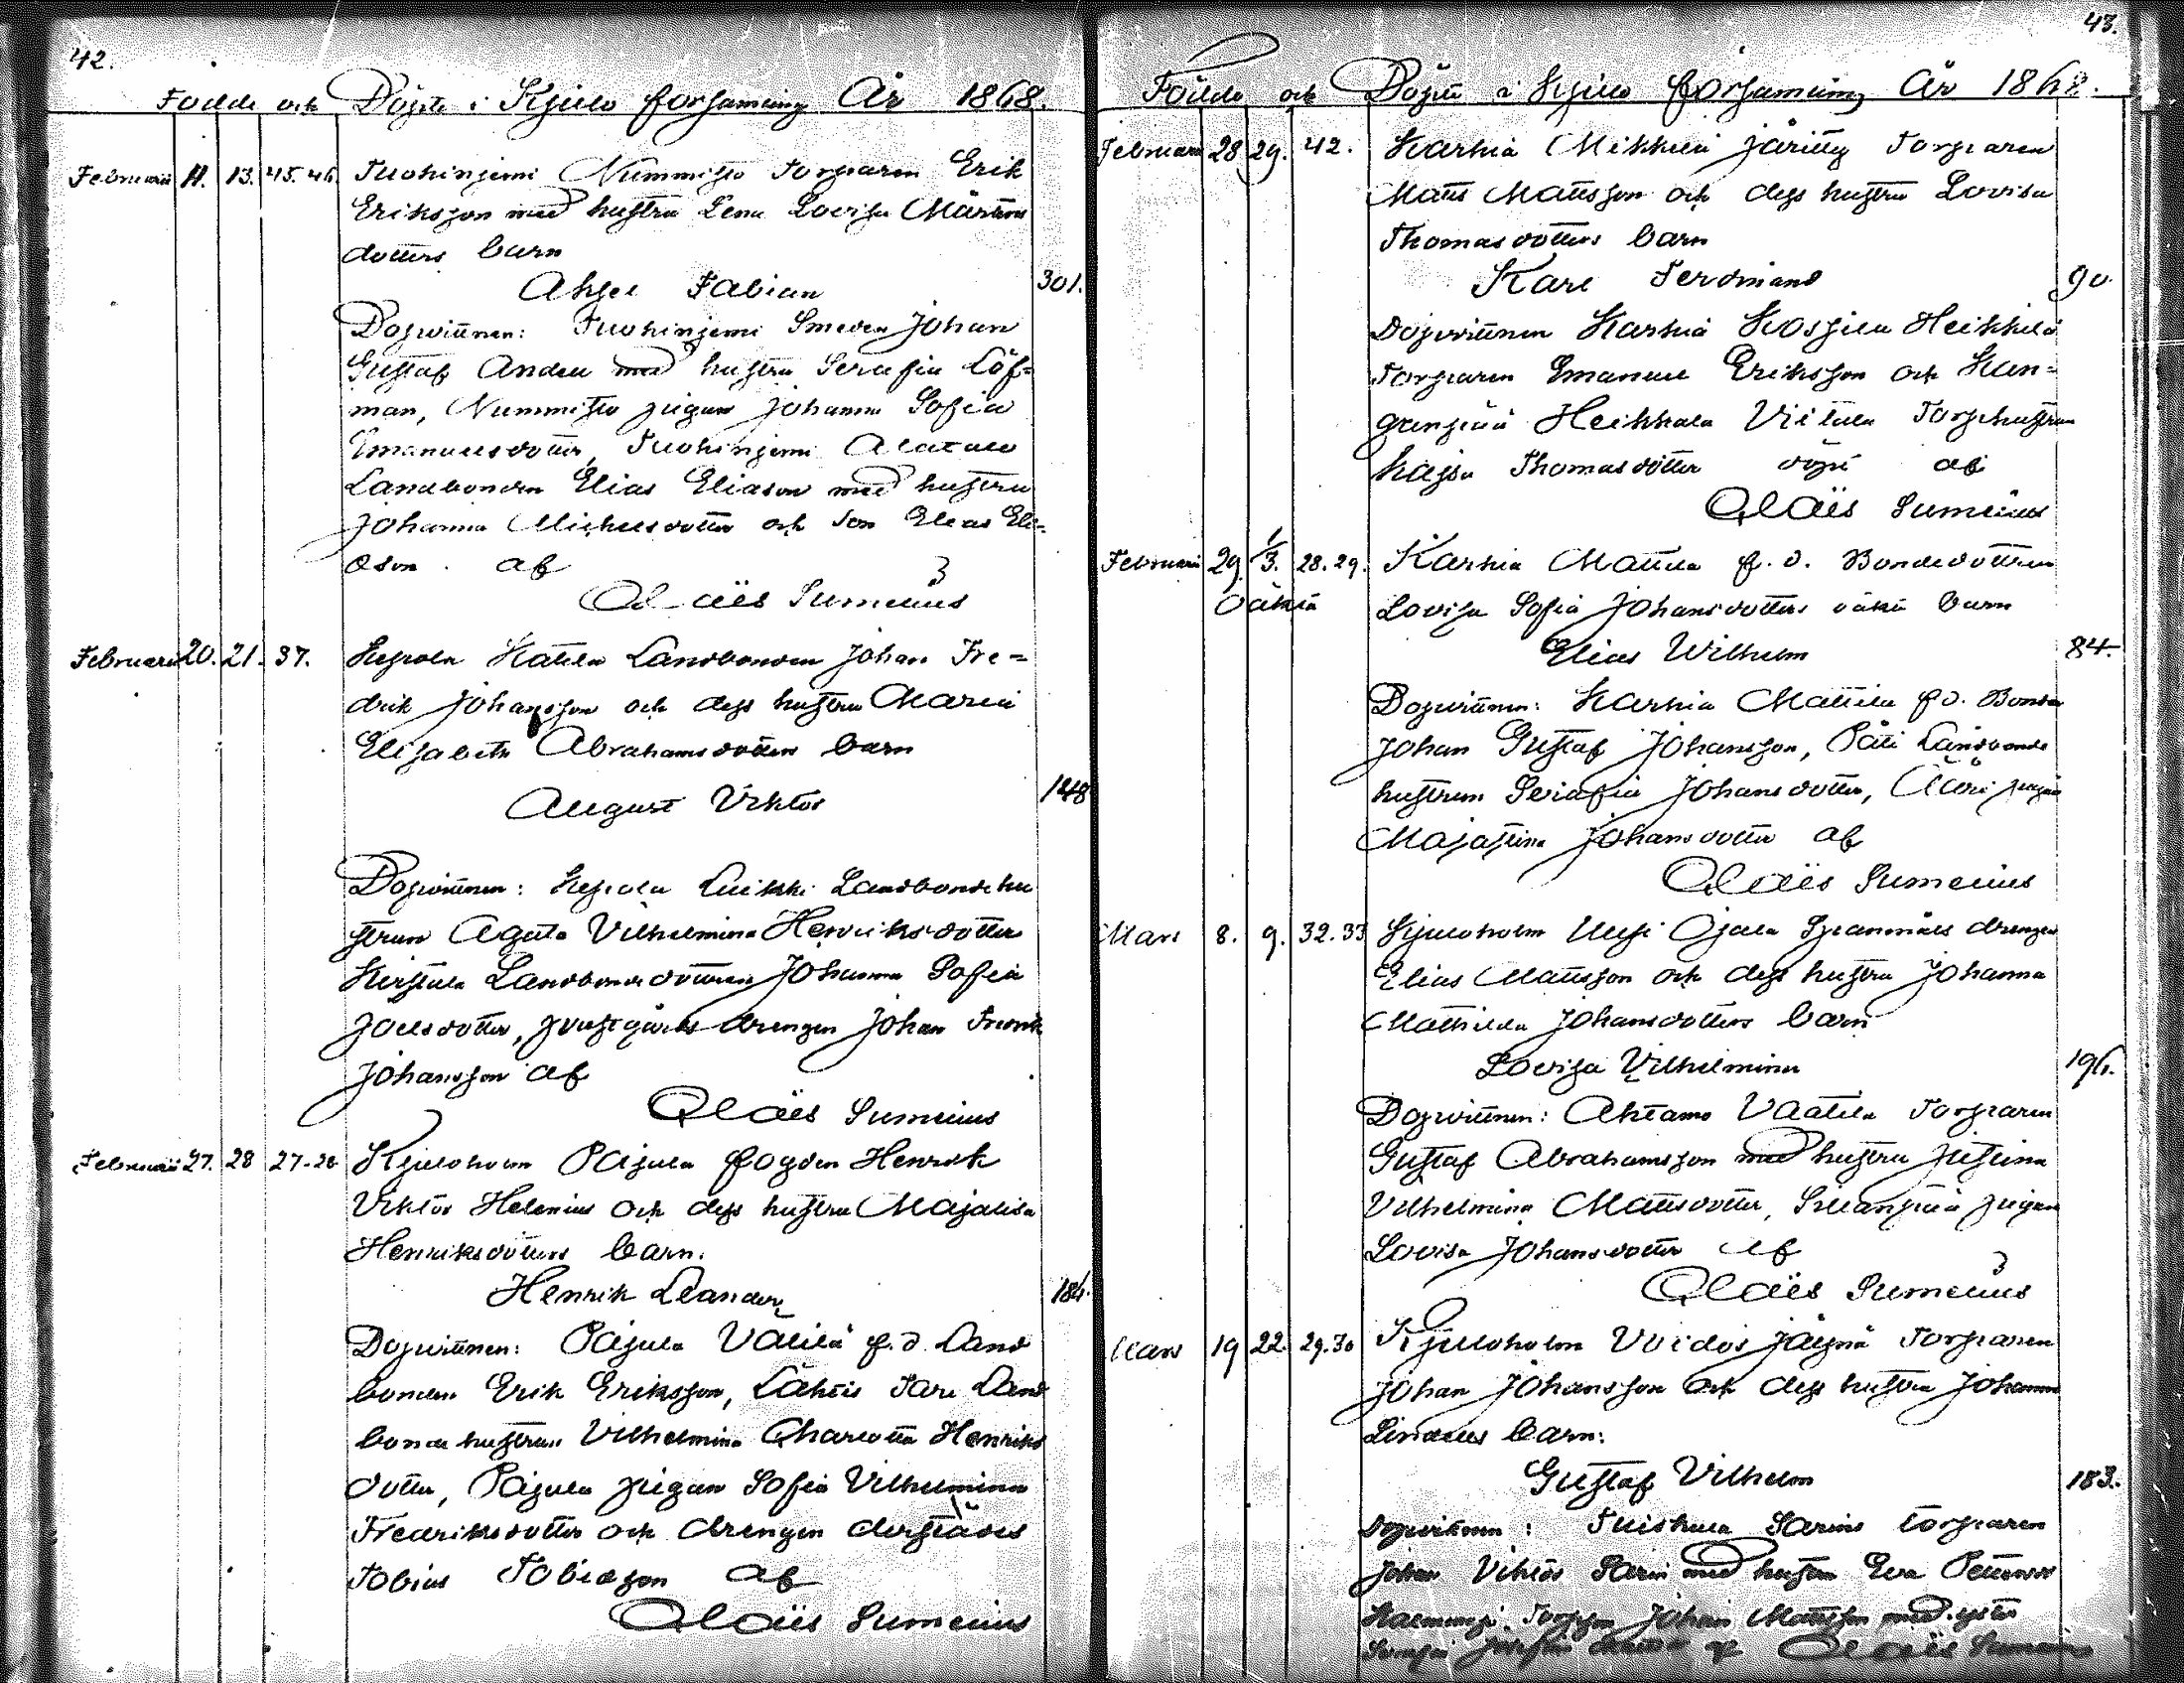 42.
Födde och Döpte i Kjulo församling År 1868.
Februarii 11. 13. 45.46. Tuohiniemi Nummisto Torparen Erik
Eriksson med hustru Lena Lovisa Mårtens
dotters barn
Aksel Fabian 301.
Dopvittnen: Tuohiniemi Smeden Johan
Gustaf Andell med hustru Serafia Löf=
man, Nummisto pigan Johanna Sofia
Emanuelsdotter, Tuohiniemi Alatalo
Landbonden Elias Eliason med hustru
Johanna Michelsdotter och Son Elias Eli=
ason af
Claës Sumelius
Februarii 20. 21. 37. Kepola Landbonden Johan Fre=
drik Johansson och dess hustru Maria
Elisabeth Abrahamsdotters barn
August Viktor 148
Dopvittnen: Kepola Luikki Landbondehu
strun Agata Vilhelmina Henriksdotter
Landbondedottren Johanna Sofia
Joelsdotter, prestgårds drengen Johan Fredrik
Johansson af
Claës Sumelius
Februarii 27. 28 27-28 Kjuloholm Pajula fogden Henrik
Viktor Helenius och dess hustru Majalisa
Henriksdotters barn.
Henrik Leander 184.
Dopvittnen: Pajula Välilä f.d. Land
bonden Erik Eriksson, Lähteis Land
bonde hustrun Vilhelmina Charlotta Henriks
dotter, Pajula pigan Sofia Vilhelmina
Fredriksdotter och drengen derstädes
Tobias Tobiason af
Claës Sumelius
43.
Födde och Döpte i Kjulo församling År 1868.
Februarii 28 29. 42. Karhia Mikkola Torparen
Matts Mattsson och dess hustru Lovisa
Thomasdotters barn
Karl Ferdinand 90.
Dopvittnen Karhia Heikkilä
Torparen Emanuel Eriksson och Kan=
Heikkala Torphustrun
Kajsa Thomasdotter af
Claës Sumelius
Februarii 29. 1/3. 28.29. Karhia Mattila f.d. Bondedottren
Oäkta Lovisa Sofia Johansdotters oäkta barn
Elias Wilhelm 84.
Dopvittnen: Karhia Mattila f.d. Bonden
Johan Gustaf Johansson, Landbonde
hustrun Serafia Johansdotter, pigan
Majastina Johansdotter af
Claës Sumelius
Mars 8. 9. 32.33 Kjuloholm Ojala drengen
Elias Mattsson och dess hustru Johanna
Mathilda Johansdotters barn
Lovisa Vilhelmina 196.
Dopvittnen: Ahtamo Vaatila Torparen
Gustaf Abrahamsson med hustru Justina
Vilhelmina Mattsdotter, pigan
Lovisa Johansdotter af
Claës Sumelius
Mars 19 22. 29.30 Kjuloholm Torparen
Johan Johansson och dess hustru Johanna
barn:
Gustaf Vilhelm 183.
Dopvittnen: Torparen
Johan Viktor med hustru Eva
Johan Mattsson med
af Claës Sumelius